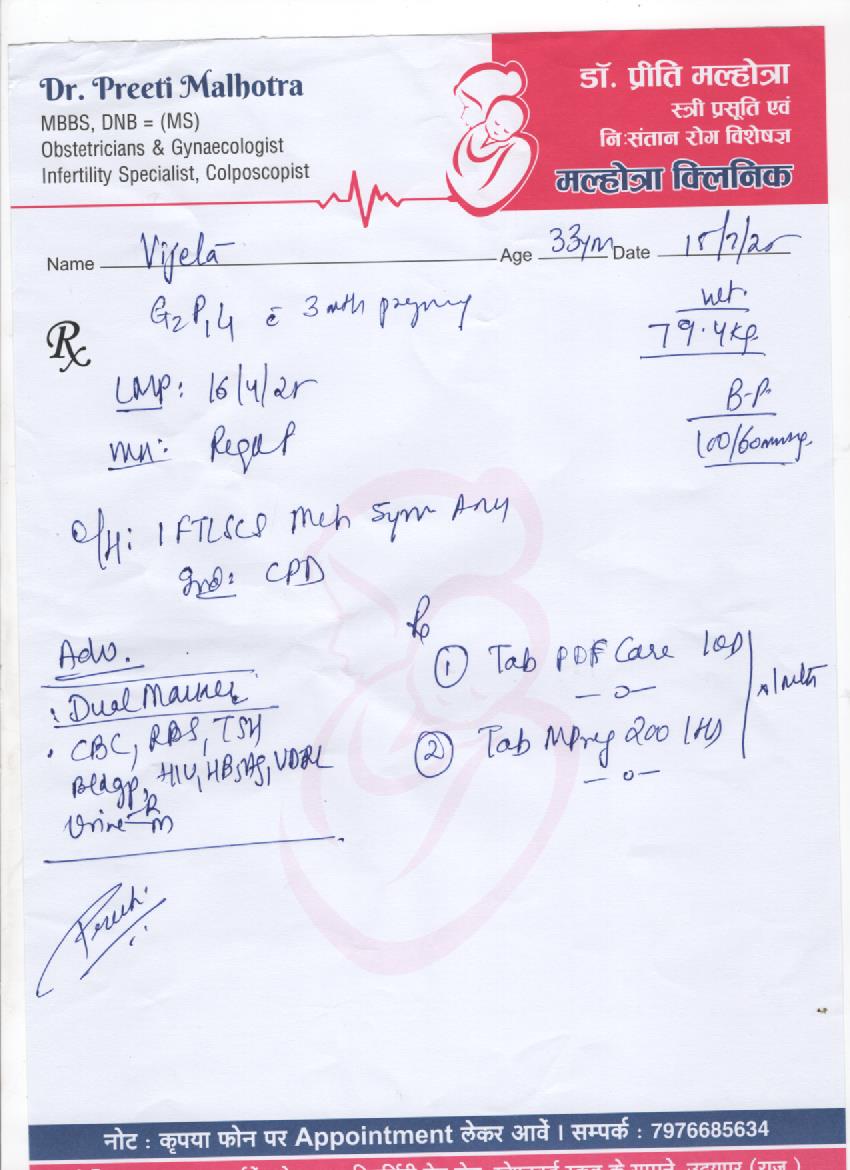 Dr. Preeti Malhotra
MBBS, DNB = (MS)
Obstetricians & Gynaecologist
Infertility Specialist, Colposcopist
डॉ. प्रीति मल्होत्रा
स्त्री प्रसूति एवं
निःसंतान रोग विशेषज्ञ
मल्होत्रा क्लिनिक
Name Vijeta Age 33 Date 15/7/25
G2P1L1 c̄ 3 mth
Rx
wt.
79.4kg
LMP: 16/4/25
B.P.
100/60mmHg
MH:
O/H: 1 FTLSCS
Ind: CPD
Adv.
: Dual Marker
. CBC, RBS, TSH
Bldgp, HIV, HBsAg, VDRL
Urine R/M
Rx
① Tab PDF Care 1OD
② Tab MPreg 200 1HS
x 1 mth
Preeti
नोट : कृपया फोन पर Appointment लेकर आवें । सम्पर्क : 7976685634